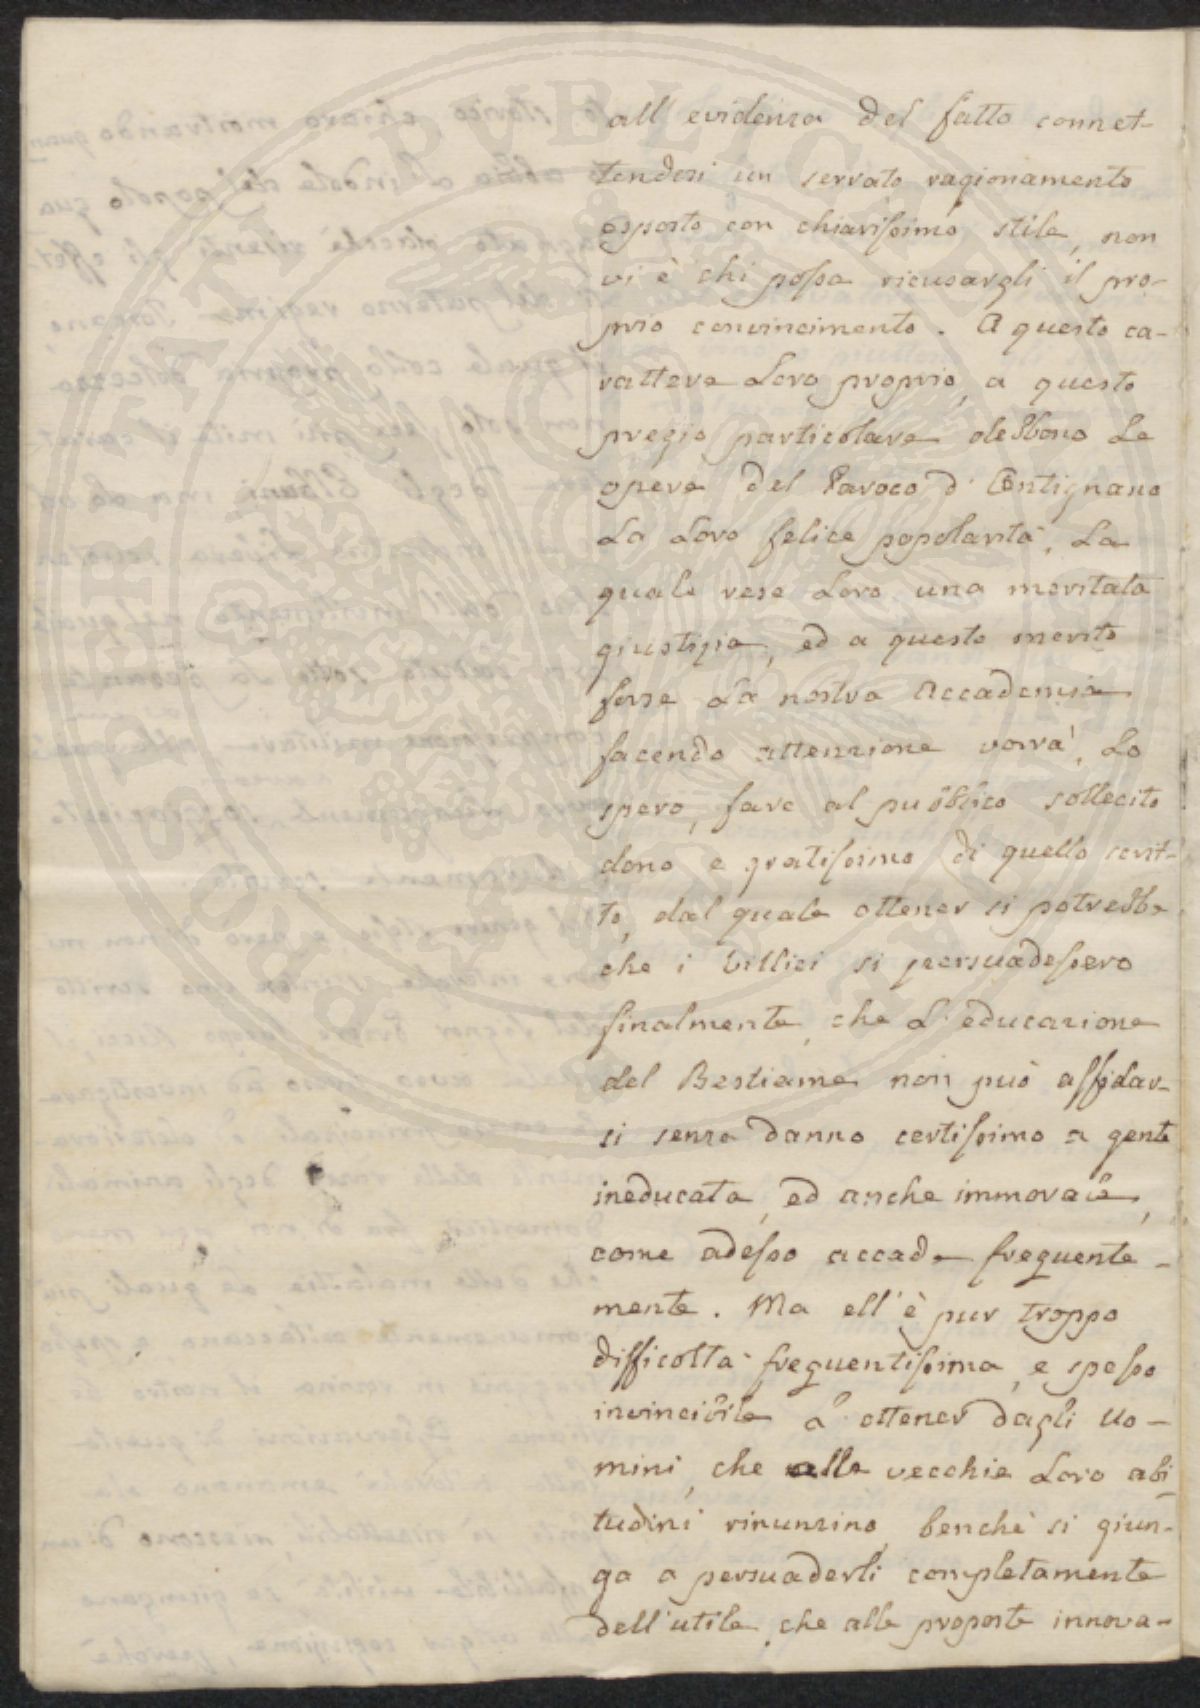 all evidenza del fatto connet-
tendosi un serrato ragionamento
esposto con chiarissimo stile, non
vi è chi possa ricusargli il pro-
prio convincimento. A questo ca-
rattere Loro proprio, a questo
pregio particolare debbono Le
opere del Paroco d' Cintignano
La Loro felice popolarità, La
quale rese Loro una meritata
giustizia, ed a questo merito
forse La nostra Accademia
facendo attenzione vorrà, Lo
spero, fare al pubblico sollecito
dono e gratissimo di quello scrit-
to, dal quale ottener si potrebbe
che i Villici si persuadessero
finalmente, che L'educazione
del Bestiame non può affidar-
si senza danno certissimo a gente
ineducata, ed anche immorale,
come adesso accade frequente-
mente. Ma ell'è pur troppo
difficoltà frequentissima, e spesso
invincibile L'ottener dagli Uo-
mini, che alle vecchie Loro abi-
tudini rinunzino, benchè si giun-
ga a persuaderli completamente
dell'utile, che alle proposte innova-
PROSPERITATI PUBLICAE AUGENDAE